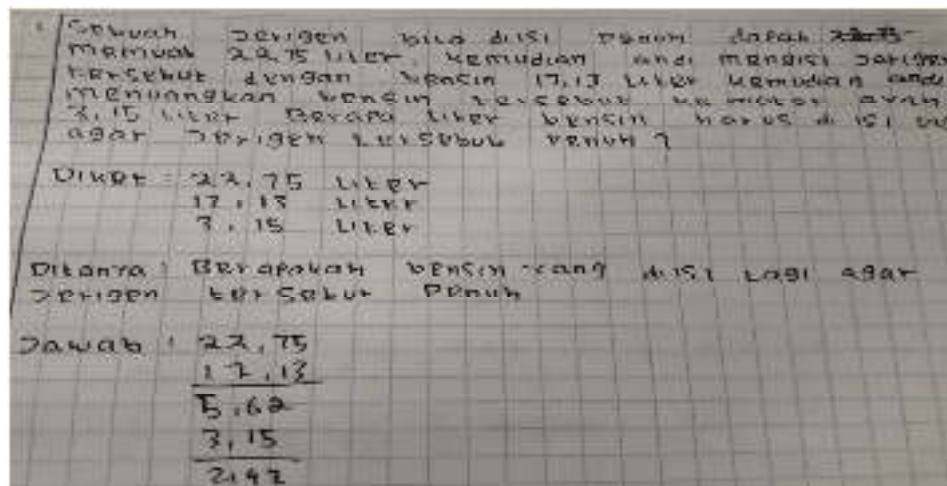 1 Sebuah Jerigen bila diisi penuh dapat
memuat 22,75 liter, kemudian andi mengisi Jarigen
tersebut dengan bensin 17,13 liter kemudian andi
menuangkan bensin tersebut ke motor ayah
3,15 liter Berapa liter bensin harus di isi
agar Jerigen tersebut penuh ?
Diket = 22,75 liter
17,13 liter
3,15 liter
Ditanya : Berapakah bensin yang diisi lagi agar
Jerigen tersebut penuh
Jawab : 22,75
17,13
5,62
3,15
2,47